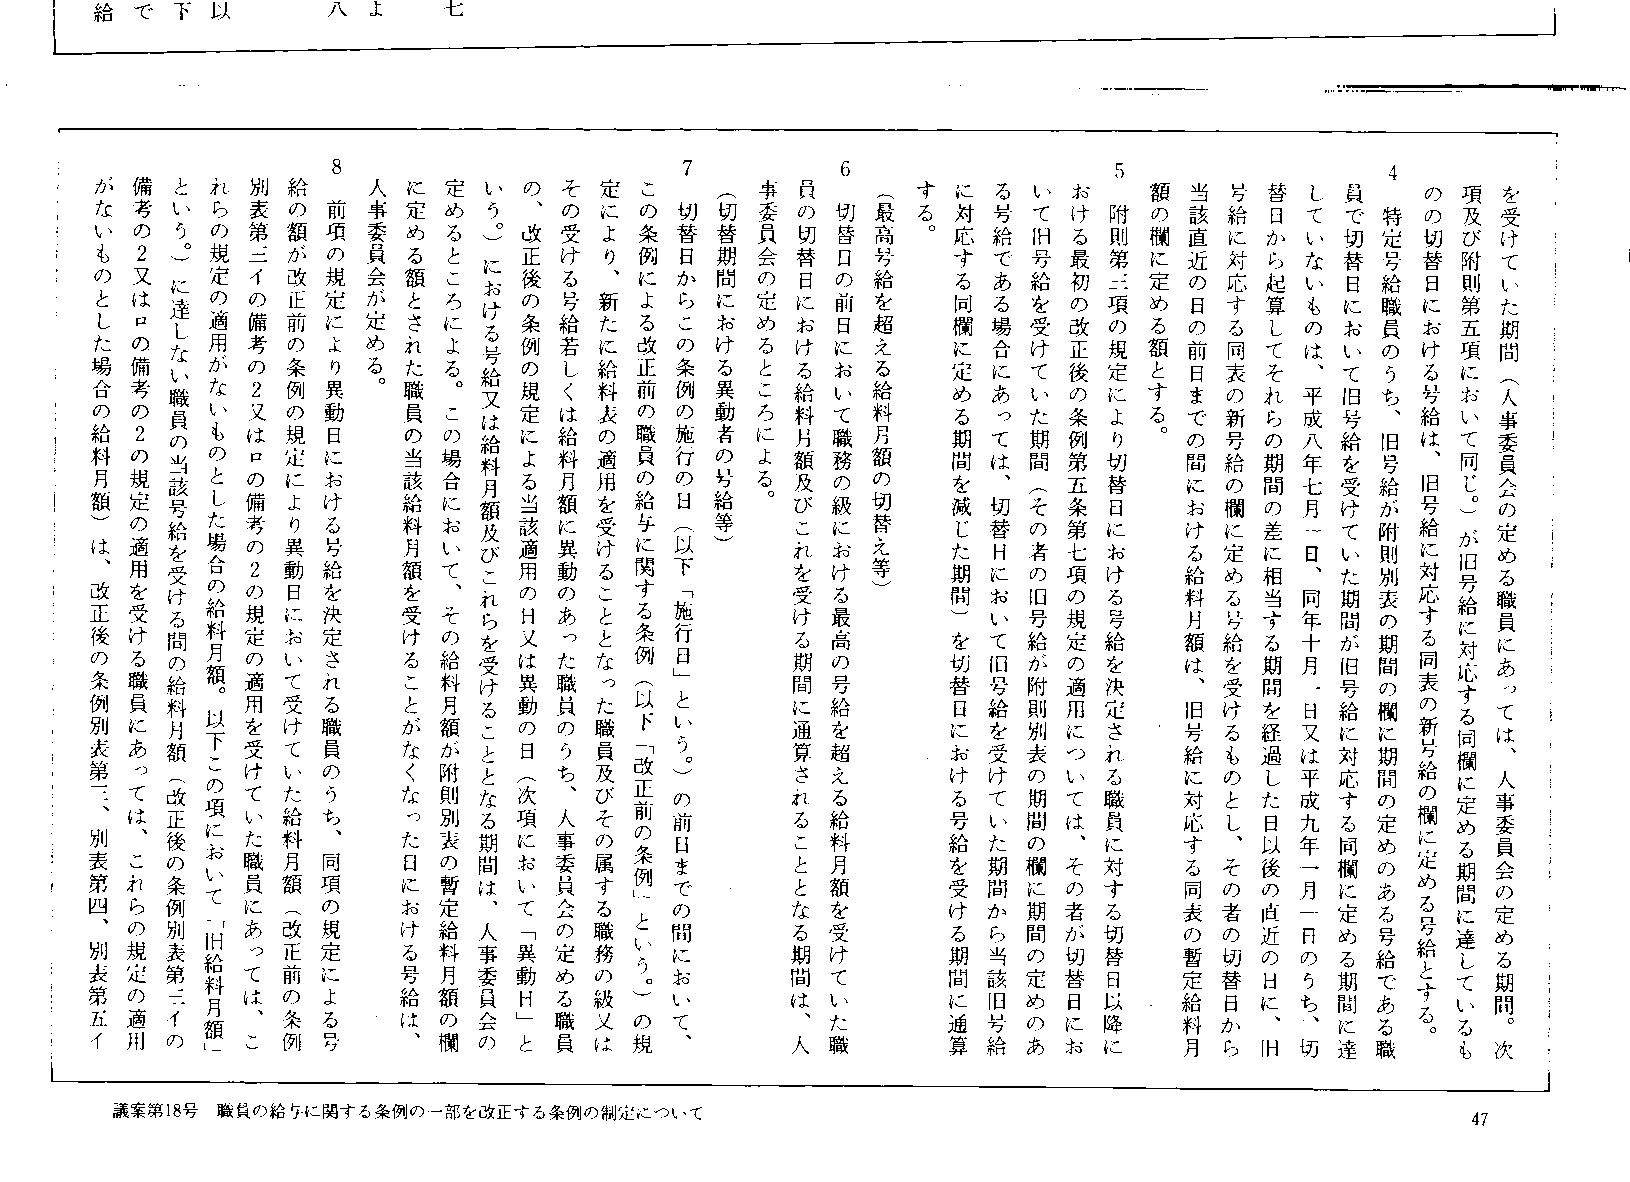 七
よ
八
以
下
で
給
を受けていた期間（人事委員会の定める職員にあっては、人事委員会の定める期間。次
項及び附則第五項において同じ。）が旧号給に対応する同欄に定める期間に達しているも
のの切替日における号給は、旧号給に対応する同表の新号給の欄に定める号給とする。
4　特定号給職員のうち、旧号給が附則別表の期間の欄に期間の定めのある号給である職
員で切替日において旧号給を受けていた期間が旧号給に対応する同欄に定める期間に達
していないものは、平成八年七月一日、同年十月一日又は平成九年一月一日のうち、切
替日から起算してそれらの期間の差に相当する期間を経過した日以後の直近の日に、旧
号給に対応する同表の新号給の欄に定める号給を受けるものとし、その者の切替日から
当該直近の日の前日までの間における給料月額は、旧号給に対応する同表の暫定給料月
額の欄に定める額とする。
5　附則第三項の規定により切替日における号給を決定される職員に対する切替日以降に
おける最初の改正後の条例第五条第七項の規定の適用については、その者が切替日にお
いて旧号給を受けていた期間（その者の旧号給が附則別表の期間の欄に期間の定めのあ
る号給である場合にあっては、切替日において旧号給を受けていた期間から当該旧号給
に対応する同欄に定める期間を減じた期間）を切替日における号給を受ける期間に通算
する。
（最高号給を超える給料月額の切替え等）
6　切替日の前日において職務の級における最高の号給を超える給料月額を受けていた職
員の切替日における給料月額及びこれを受ける期間に通算されることとなる期間は、人
事委員会の定めるところによる。
（切替期間における異動者の号給等）
7　切替日からこの条例の施行の日（以下「施行日」という。）の前日までの間において、
この条例による改正前の職員の給与に関する条例（以下「改正前の条例」という。）の規
定により、新たに給料表の適用を受けることとなった職員及びその属する職務の級又は
その受ける号給若しくは給料月額に異動のあった職員のうち、人事委員会の定める職員
の、改正後の条例の規定による当該適用の日又は異動の日（次項において「異動日」と
いう。）における号給又は給料月額及びこれらを受けることとなる期間は、人事委員会の
定めるところによる。この場合において、その給料月額が附則別表の暫定給料月額の欄
に定める額とされた職員の当該給料月額を受けることがなくなった日における号給は、
人事委員会が定める。
8　前項の規定により異動日における号給を決定される職員のうち、同項の規定による号
給の額が改正前の条例の規定により異動日において受けていた給料月額（改正前の条例
別表第三イの備考の2又はロの備考の2の規定の適用を受けていた職員にあっては、こ
れらの規定の適用がないものとした場合の給料月額。以下この項において「旧給料月額」
という。）に達しない職員の当該号給を受ける間の給料月額（改正後の条例別表第三イの
備考の2又はロの備考の2の規定の適用を受ける職員にあっては、これらの規定の適用
がないものとした場合の給料月額）は、改正後の条例別表第三、別表第四、別表第五イ
議案第18号　職員の給与に関する条例の一部を改正する条例の制定について
47